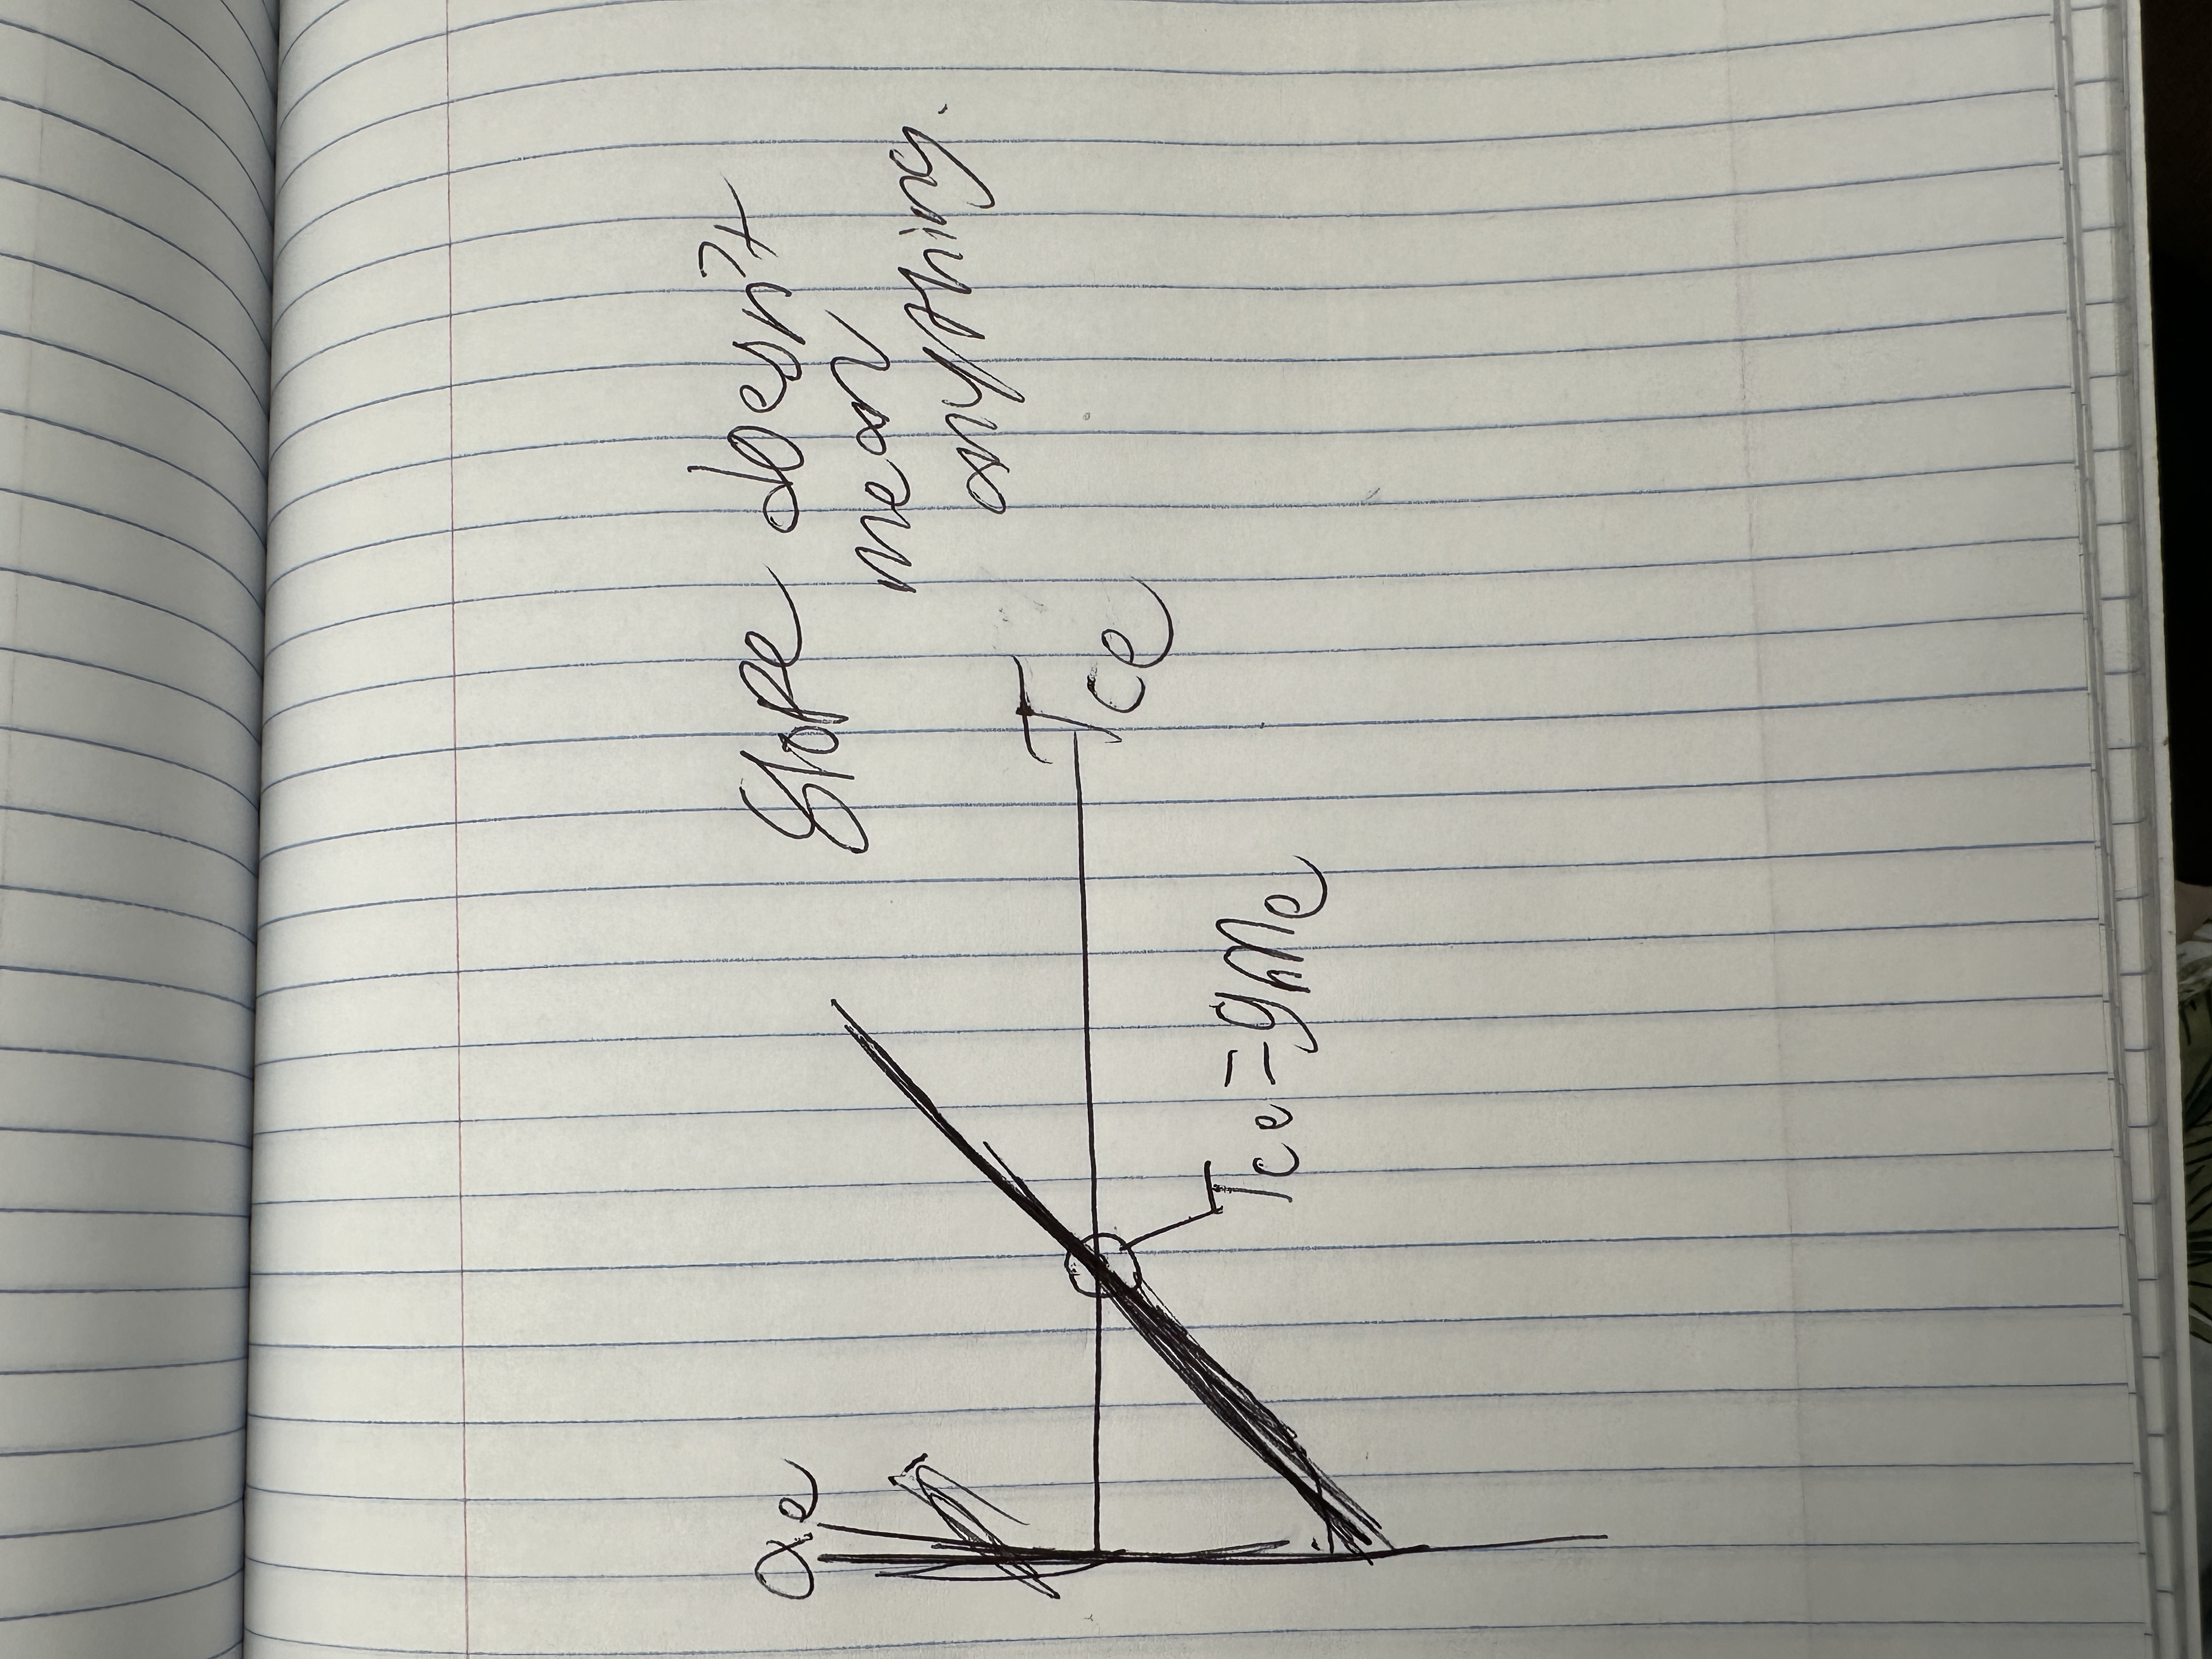 αe
Slope doesn't
mean
anything.
Tce
Tce = gme